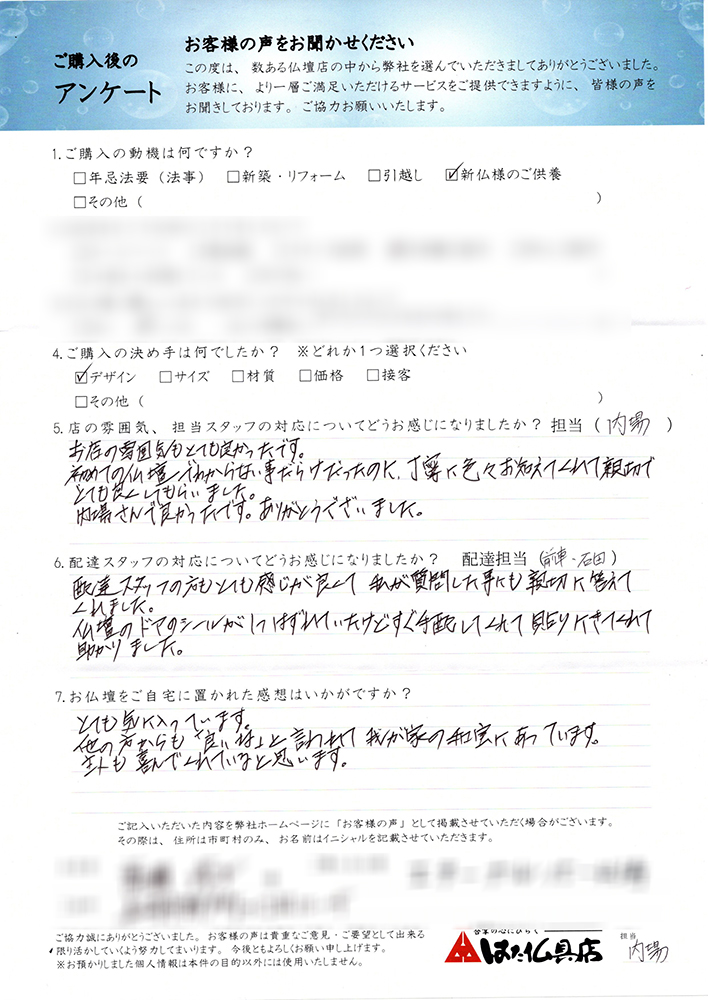 ご購入後の
アンケート
お客様の声をお聞かせください
この度は、数ある仏壇店の中から弊社を選んでいただきましてありがとうございました。
お客様に、より一層ご満足いただけるサービスをご提供できますように、皆様の声を
お聞きしております。ご協力お願いいたします。
1.ご購入の動機は何ですか？
□年忌法要（法事） □新築・リフォーム □引越し ☑新仏様のご供養
□その他（ ）
4.ご購入の決め手は何でしたか？ ※どれか1つ選択ください
☑デザイン □サイズ □材質 □価格 □接客
□その他（ ）
5.店の雰囲気、担当スタッフの対応についてどうお感じになりましたか？担当（内場）
お店の雰囲気もとても良かったです。
初めての仏壇でわからない事だらけだったのに、丁寧に色々お知えてくれて親切で
とても良くしてもらいました。
内場さんで良かったです。ありがとうございました。
6.配達スタッフの対応についてどうお感じになりましたか？ 配達担当（前車・石田）
配達スタッフの方もとても感じが良くて 私が質問した事にも親切に答えて
くれました。
仏壇のドアのシールが1つはずれていたけどすぐ手配してくれて貼りにきてくれて
助かりました。
7.お仏壇をご自宅に置かれた感想はいかがですか？
とても気に入っています。
他の方からも「良いね」と言われて 我が家の和室にあっています。
主人も喜んでくれていると思います。
ご記入いただいた内容を弊社ホームページに「お客様の声」として掲載させていただく場合がございます。
その際は、住所は市町村のみ、お名前はイニシャルを記載させていただきます。
ご協力誠にありがとうございました。お客様の声は貴重なご意見・ご要望として出来る
限り活かしていくよう努力してまいります。今後ともよろしくお願い申し上げます。
※お預かりしました個人情報は本件の目的以外には使用いたしません。
合掌の心にひらく
はた仏具店
担当
内場